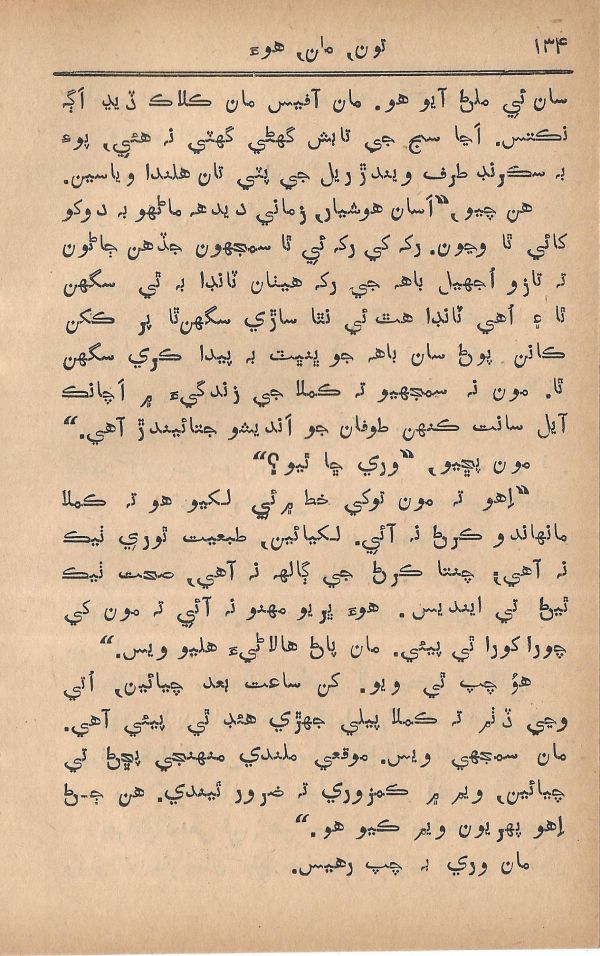 ۱۳۴ تون، مان، هوءَ
سان ئي ملڻ آيو هو. مان آفيس مان ڪلاڪ ڏيڍ اڳ
نڪتس. اڃا سج جي تابش گهڻي گهٽي نہ هئي، پوءِ
بہ سڪرنڊ طرف ويندڙ ريل جي پٽي تان هلندا وياسين.
هن چيو، ”اَسان هوشيار، زماني ديدہ ماڻهو بہ دوکو
کائي ٿا وڃون. رک کي رک ئي ٿا سمجهون جڏهن ڄاڻون
تہ تازو اُجهيل باهہ جي رک هيٺان ٽانڊا بہ ٿي سگهن
ٿا ۽ اُهي ٽانڊا هٿ ئي نٿا ساڙي سگهن ٿا پر ڪکن
ڪانن پوڻ سان باهہ جو ڀنڀٽ بہ پيدا ڪري سگهن
ٿا. مون نہ سمجهيو تہ ڪملا جي زندگيءَ ۾ اَچانڪ
آيل سانت ڪنهن طوفان جو اَنديشو جتائيندڙ آهي.“
مون پڇيو، ”وري ڇا ٿيو؟“
”اِهو تہ مون توکي خط ۾ ئي لکيو هو تہ ڪملا
مانهاندو ڪرڻ نہ آئي. لکيائين، طبعيت ٿوري ٺيڪ
نہ آهي؛ چنتا ڪرڻ جي ڳالهہ نہ آهي، صحت ٺيڪ
ٿيڻ تي اينديس. هوءَ ڀريو مهنو نہ آئي تہ مون کي
چورا کورا ٿي پيئي. مان پاڻ هالاڻيءَ هليو ويس.“
هوُ چپ ٿي ويو. کن ساعت بعد چيائين، اُتي
وڃي ڏٺم تہ ڪملا پيلي جهڙي هئڊ ٿي پيئي آهي.
مان سمجهي ويس. موقعي ملندي منهنجي پڇڻ تي
چيائين، ويم ۾ ڪمزوري تہ ضرور ٿيندي. هن ڄڻ
اِهو پهريون ويم ڪيو هو.“
مان وري بہ چپ رهيس.